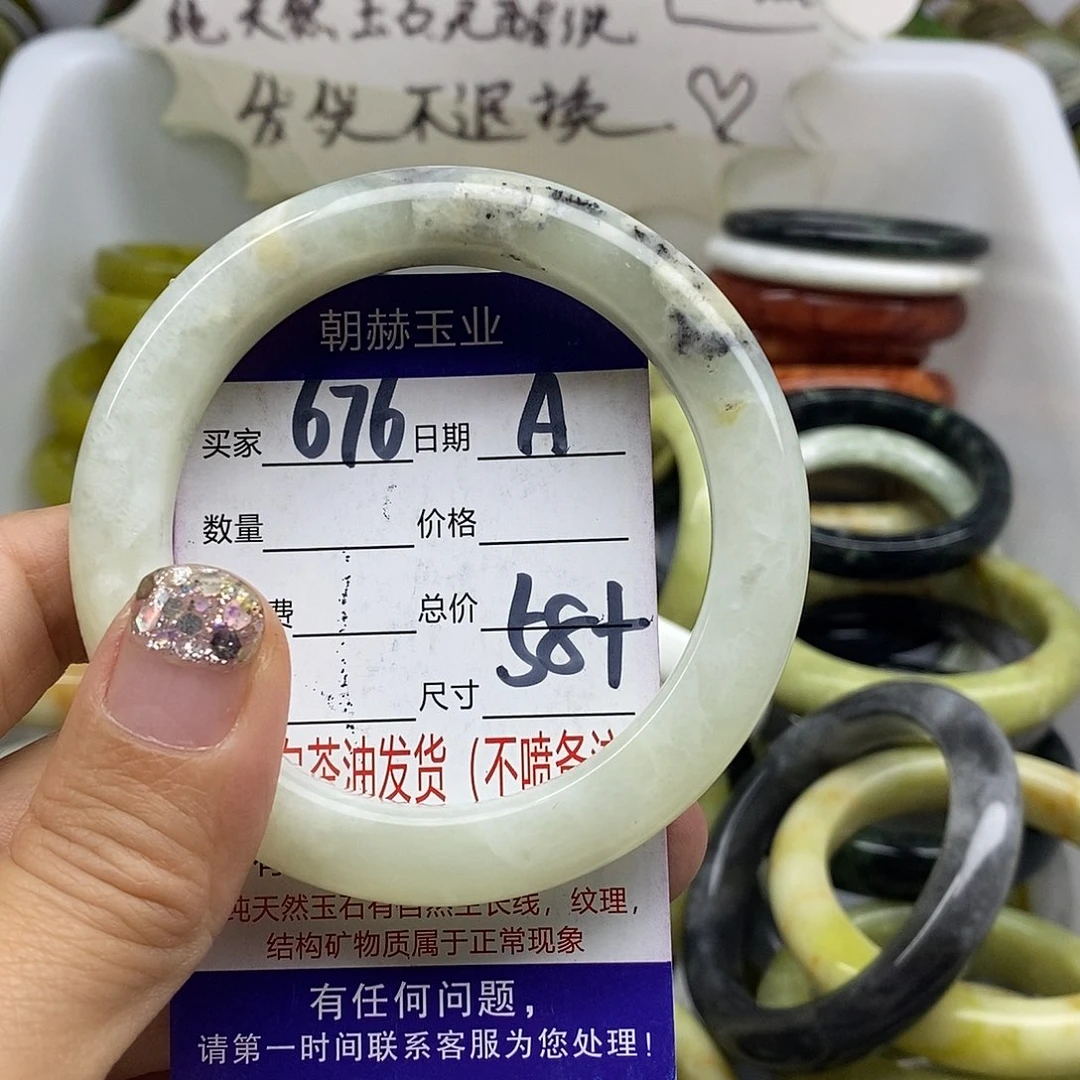 纯天然玉石无酸洗
售后不退换
朝赫玉业
买家 676 日期 A
数量 价格
费 总价 58+
尺寸
茶油发货（不喷
纯天然玉石有自然生长线，纹理，
结构矿物质属于正常现象
有任何问题，
请第一时间联系客服为您处理！